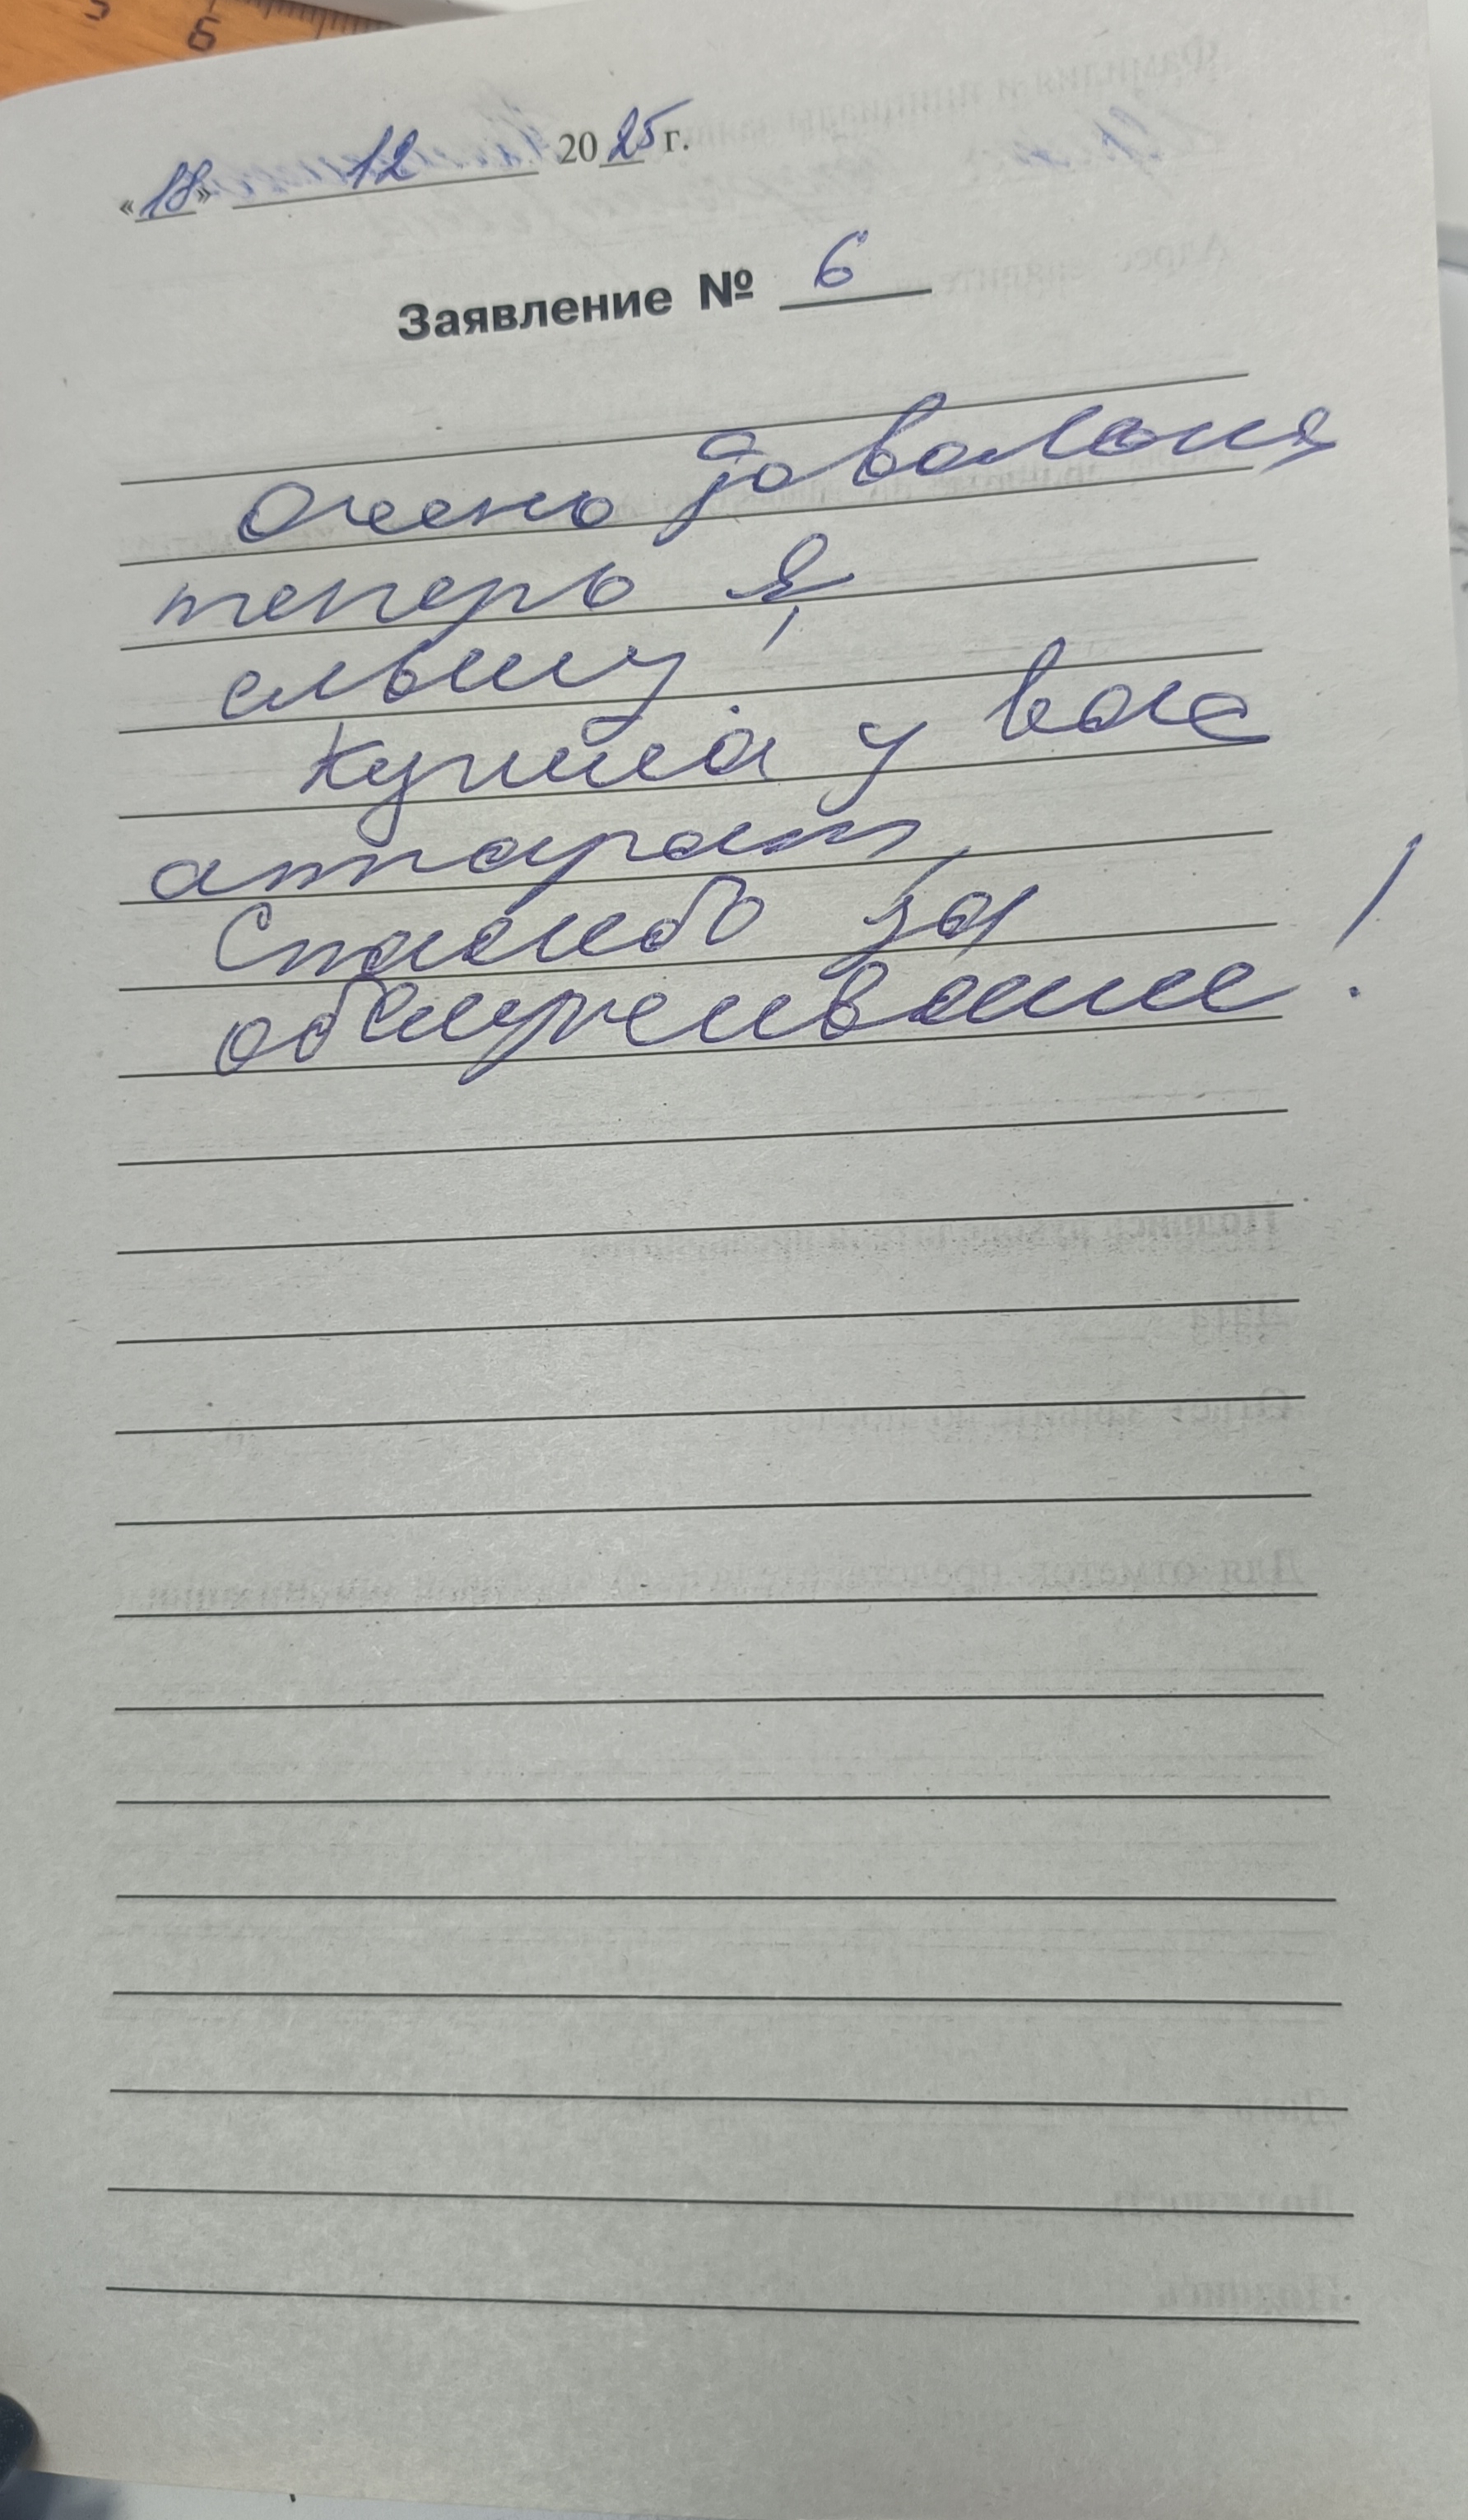 «18» 12 2025 г.
Заявление № 6
Очень довольня
теперь я,
слышу
Купила у вас
аппарат,
Спасибо за
обслуживание!